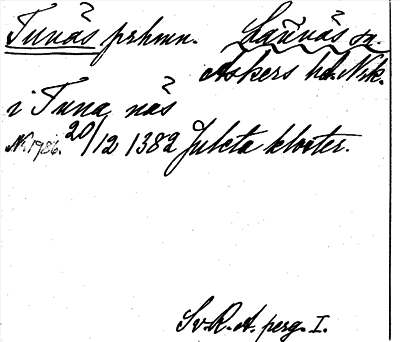 Tunäs prhmn. Lännäs sn.
Askers hd. Nrk.
i Tuna näs
Nr. 1986. 20/12 1382 Juleta kloster.
Sv. R. A. perg. I.